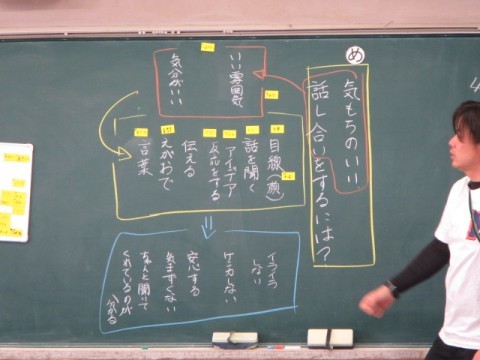 め
気もちのいい
話し合いをするには？
いい雰囲気
気分がいい
目線(顔)
話を聞く
アイデア
反応をする
伝える
えがおで
言葉
イライラ
しない
ケンカしない
安心する
気まずくない
ちゃんと聞いて
くれているのが
分かる